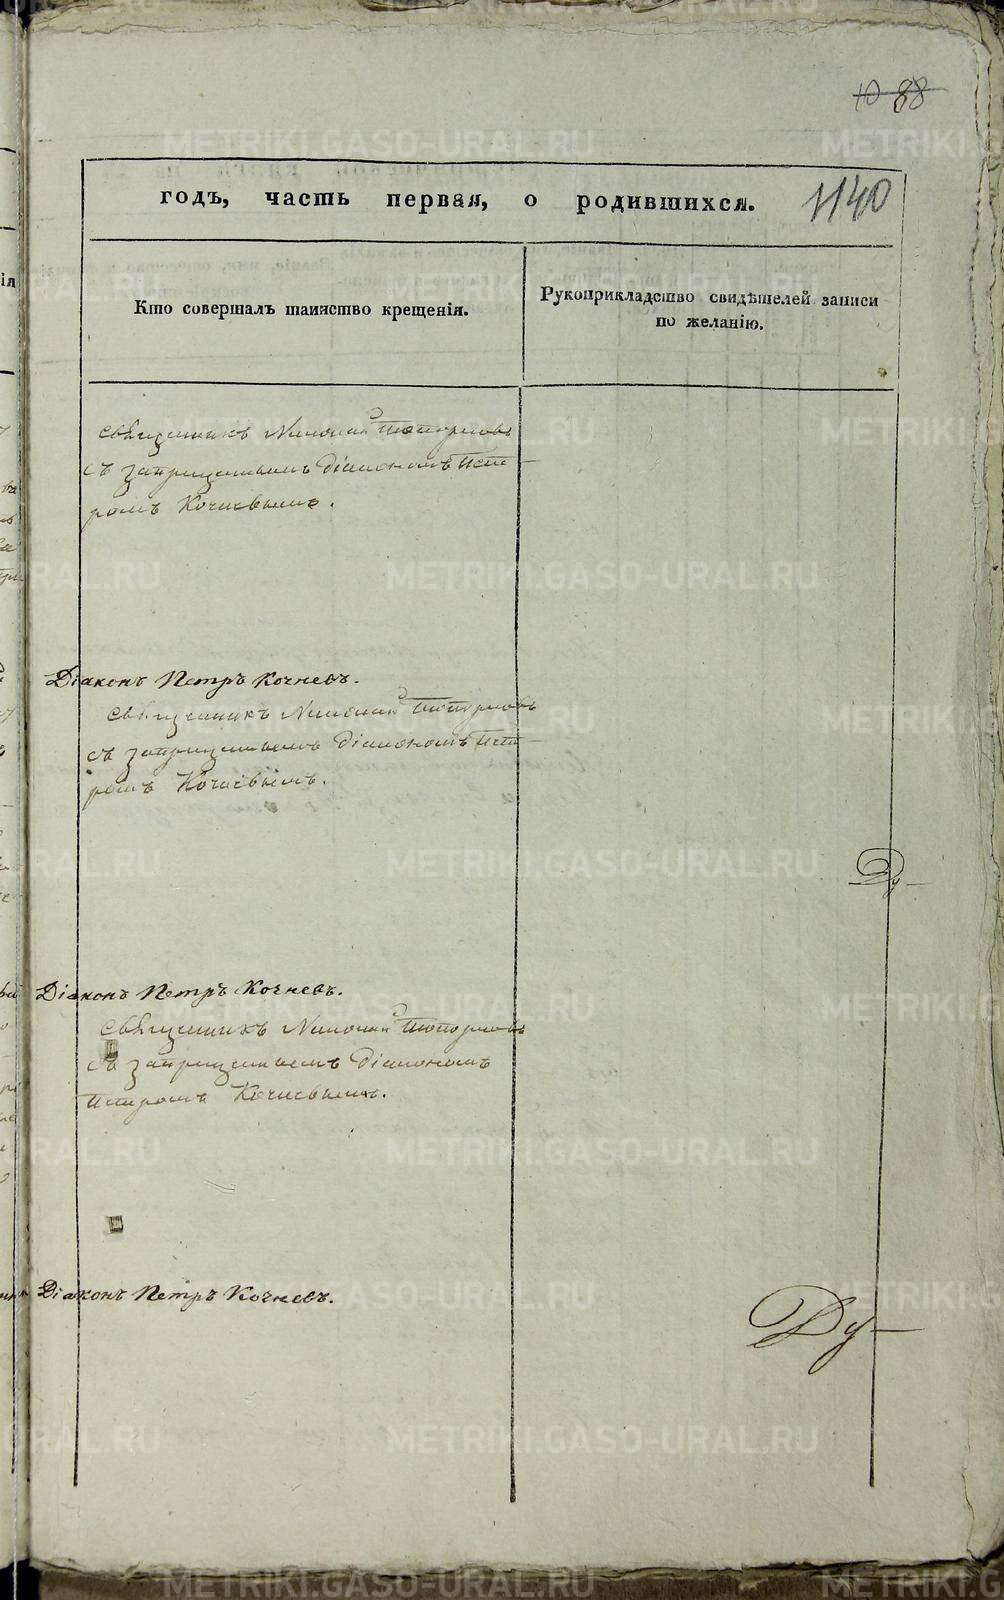 10 88
1140
годъ, часть первая, о родившихся.
Кто совершалъ таинство крещенія.
Рукоприкладство свидѣтелей записи
по желанію.
священникъ Николай Топорковъ
съ запрещеннымъ діакономъ Пет-
ромъ Кочневымъ.
Діаконъ Петръ Кочневъ.
священникъ Николай Топорковъ
съ запрещеннымъ діакономъ Пет-
ромъ Кочневымъ.
Ду-
Діаконъ Петръ Кочневъ.
священникъ Николай Топорковъ
съ запрещеннымъ діакономъ
Петромъ Кочневымъ.
Діаконъ Петръ Кочневъ.
Ду-
METRIKI.GASO-URAL.RU